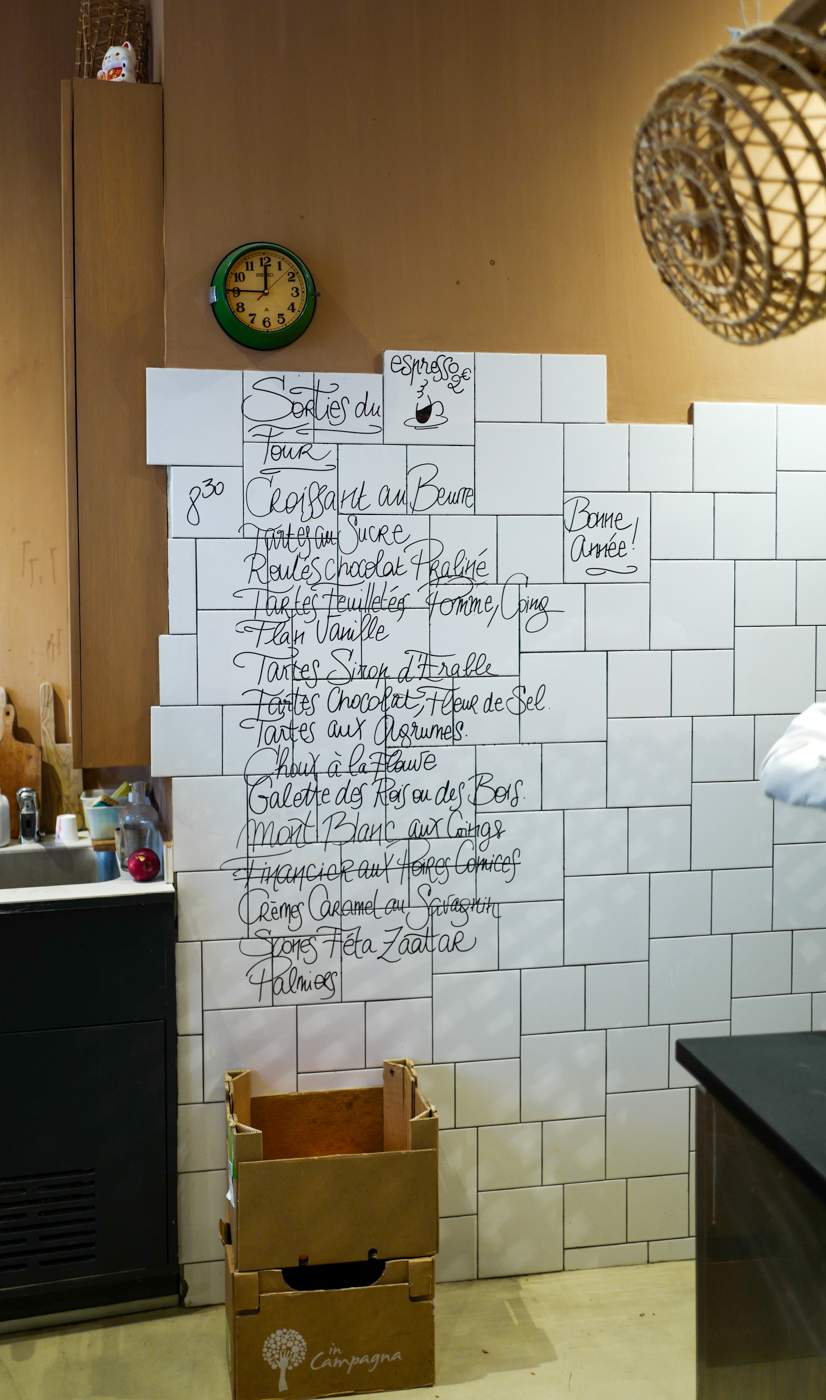 12
1
2
3
4
5
6
7
8
9
10
11
SEIKO
espresso
2€
Sorties du
Four
8 30
Croissant au Beurre
Tartes au Sucre
Roulés chocolat Praliné
Tartes Feuilletés, Pomme, Coing
Flan Vanille
Tartes Sirop d'Erable
Tartes Chocolat, Fleur de Sel.
Tartes aux Agrumes.
Choux à la Flouve
Galette des Rois ou des Bois.
Mont Blanc aux Coings
Financier aux Poires Comices
Crèmes Caramel au Savagnin
Scones Féta Zaatar
Palmiers
Bonne
Année!
in
Campagna